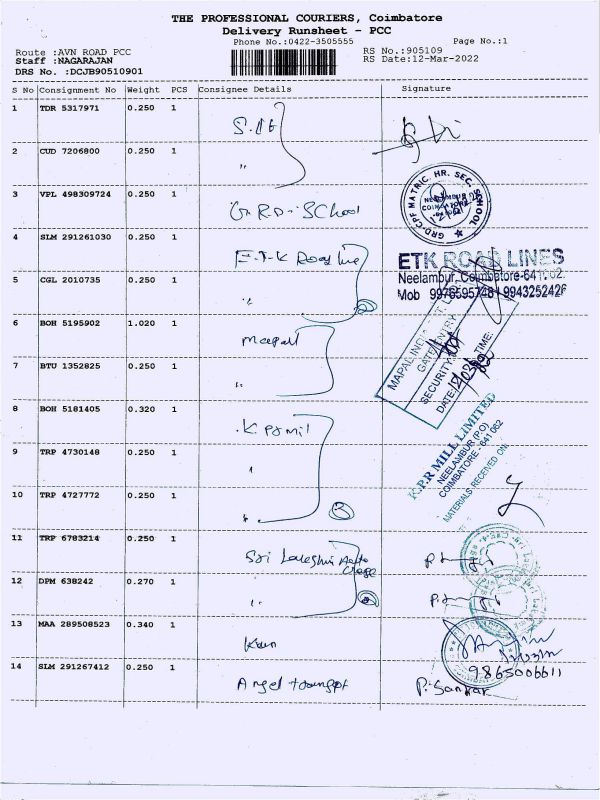 THE PROFESSIONAL COURIERS, Coimbatore
Delivery Runsheet - PCC
Phone No.:0422-3505555 Page No.:1
Route :AVN ROAD PCC RS No.:905109
Staff :NAGARAJAN RS Date:12-Mar-2022
DRS No. :DCJB90510901
S No Consignment No Weight PCS Consignee Details Signature
1 TDR 5317971 0.250 1
2 CUD 7206800 0.250 1 "
3 VPL 498309724 0.250 1 G.R.D. School
GRD-CPF MATRIC. HR. SEC. SCHOOL
4 SLM 291261030 0.250 1 E.T.K Road line
ETK ROAD LINES
Neelambur, Coimbatore-641062.
5 CGL 2010735 0.250 1 "
Mob 9943252426
6 BOH 5195902 1.020 1 Mapall
GATE ENTRY
SECURITY:
DATE: TIME:
7 BTU 1352825 0.250 1 "
8 BOH 5181405 0.320 1 K.P.R mil
K.P.R MILL LIMITED
NEELAMBUR (P.O)
COIMBATORE - 641 062
MATERIALS RECEIVED ON
9 TRP 4730148 0.250 1 "
10 TRP 4727772 0.250 1 "
11 TRP 6783214 0.250 1 Sri Lakshmi
12 DPM 638242 0.270 1 "
13 MAA 289508523 0.340 1
9865006611
14 SLM 291267412 0.250 1 Angel transport P. Sankar